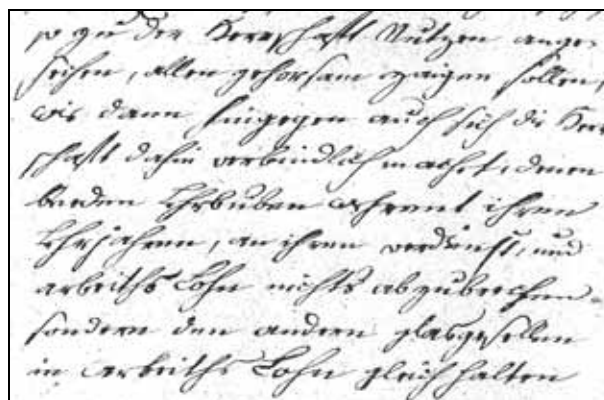 so zu der Herrschafft Nutzen ange-
sehen, allen gehorsam zaigen sollen,
wie dann hingegen auch sich die Herr
schafft dahin verbindlich machet, denen
beeden Lehrbuben ihren
Lehrjahren, an ihren verdinst, und
arbeiths Lohn nichts abzubrechen
sondern den andern glasgesellen
in arbeiths Lohn gleich halten